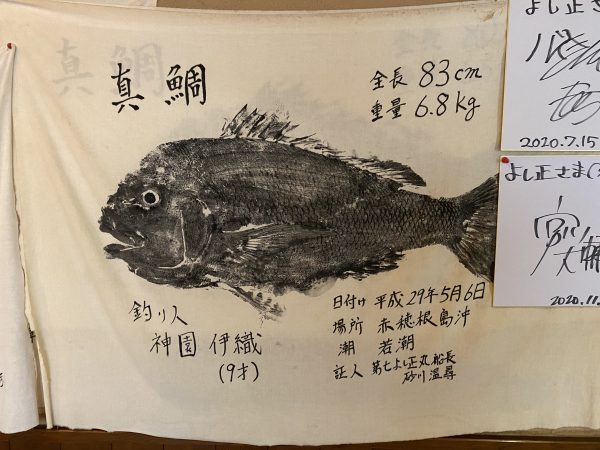 真鯛
全長 83cm
重量 6.8kg
釣り人
神園 伊織
(9才)
日付け 平成29年5月6日
場所 赤穂根島沖
潮 若潮
証人 第七よし正丸 船長
砂川 温尋
よし正さ
2020.7.15
よし正さま
2020.11.